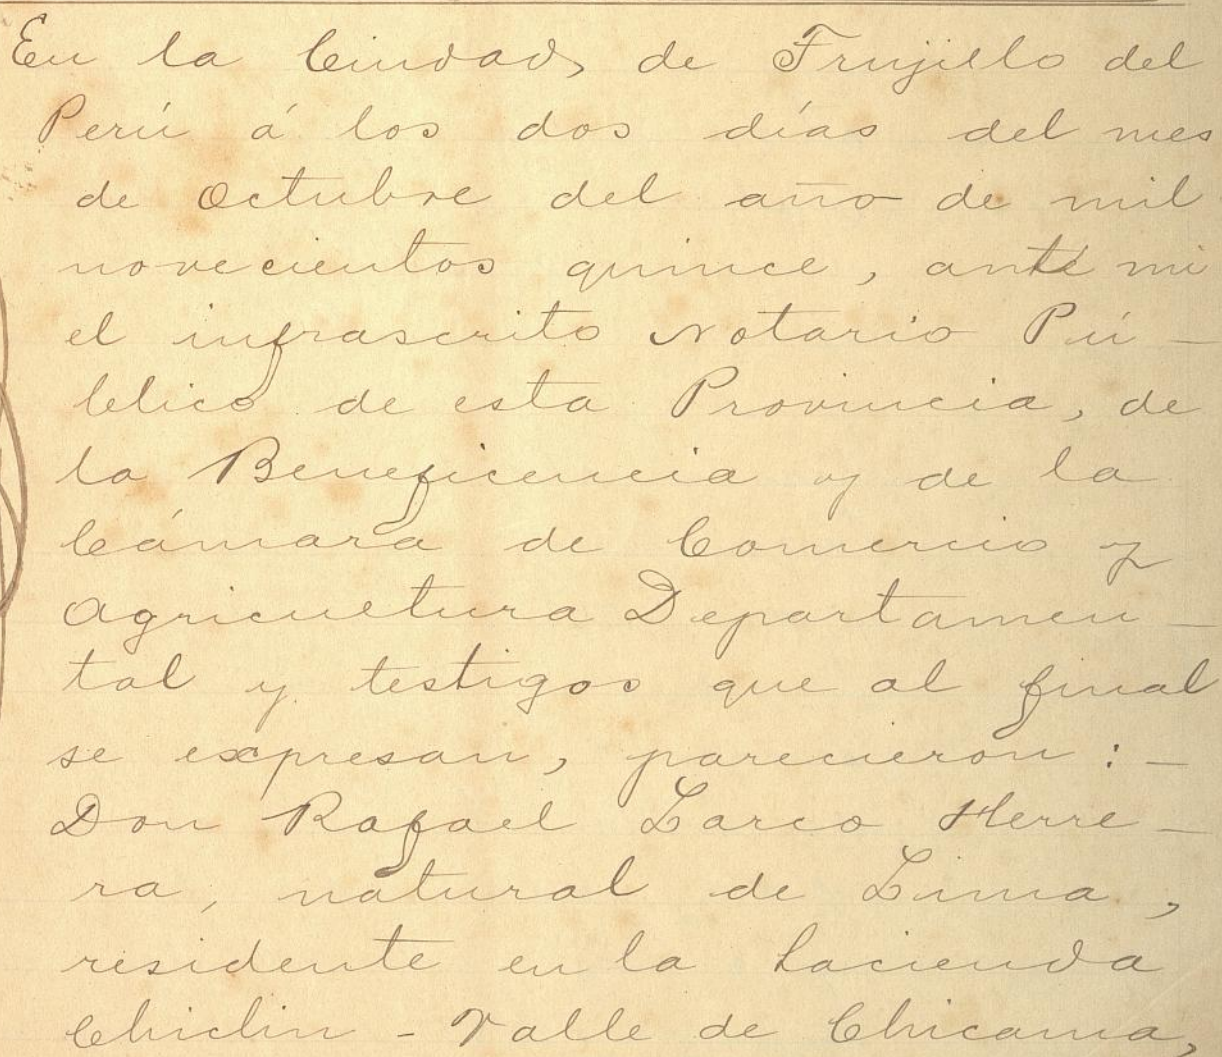 En la Ciudad de Trujillo del
Perú á los dos días del mes
de Octubre del año de mil
novecientos quince, ante mi
el infrascrito Notario Pú-
blico de esta Provincia, de
la Beneficencia y de la
Cámara de Comercio y
Agricultura Departamen-
tal y testigos que al final
se expresan, parecieron:-
Don Rafael Larco Herre-
ra, natural de Lima,
residente en la hacienda
Chiclin - Valle de Chicama,